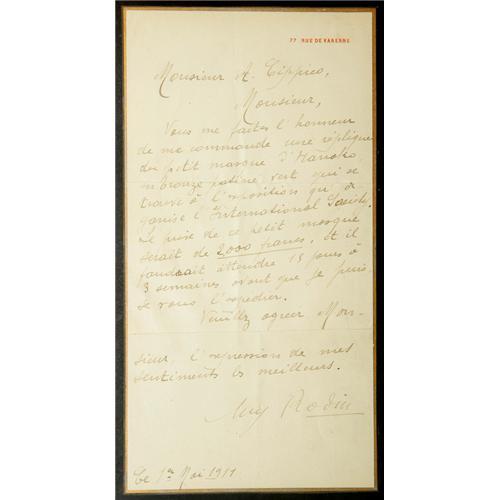 77 RUE DE VARENNE
Monsieur A. Cippico,
Monsieur,
Vous me faites l'honneur
de me commande une réplique
du petit masque d'Hanako
en bronze patine vert qui se
trouve à l'exposition qu'or
ganise l'International Society.
Le prise de ce petit masque
serait de 2000 francs, et il
faudrait attendre 15 jours à
3 semaines avant que je puis
se vous l'expedier.
Veuillez agreer Mon-
sieur, l'expression de mes
sentiments les meilleurs.
Aug Rodin
Ce 1er Mai 1911